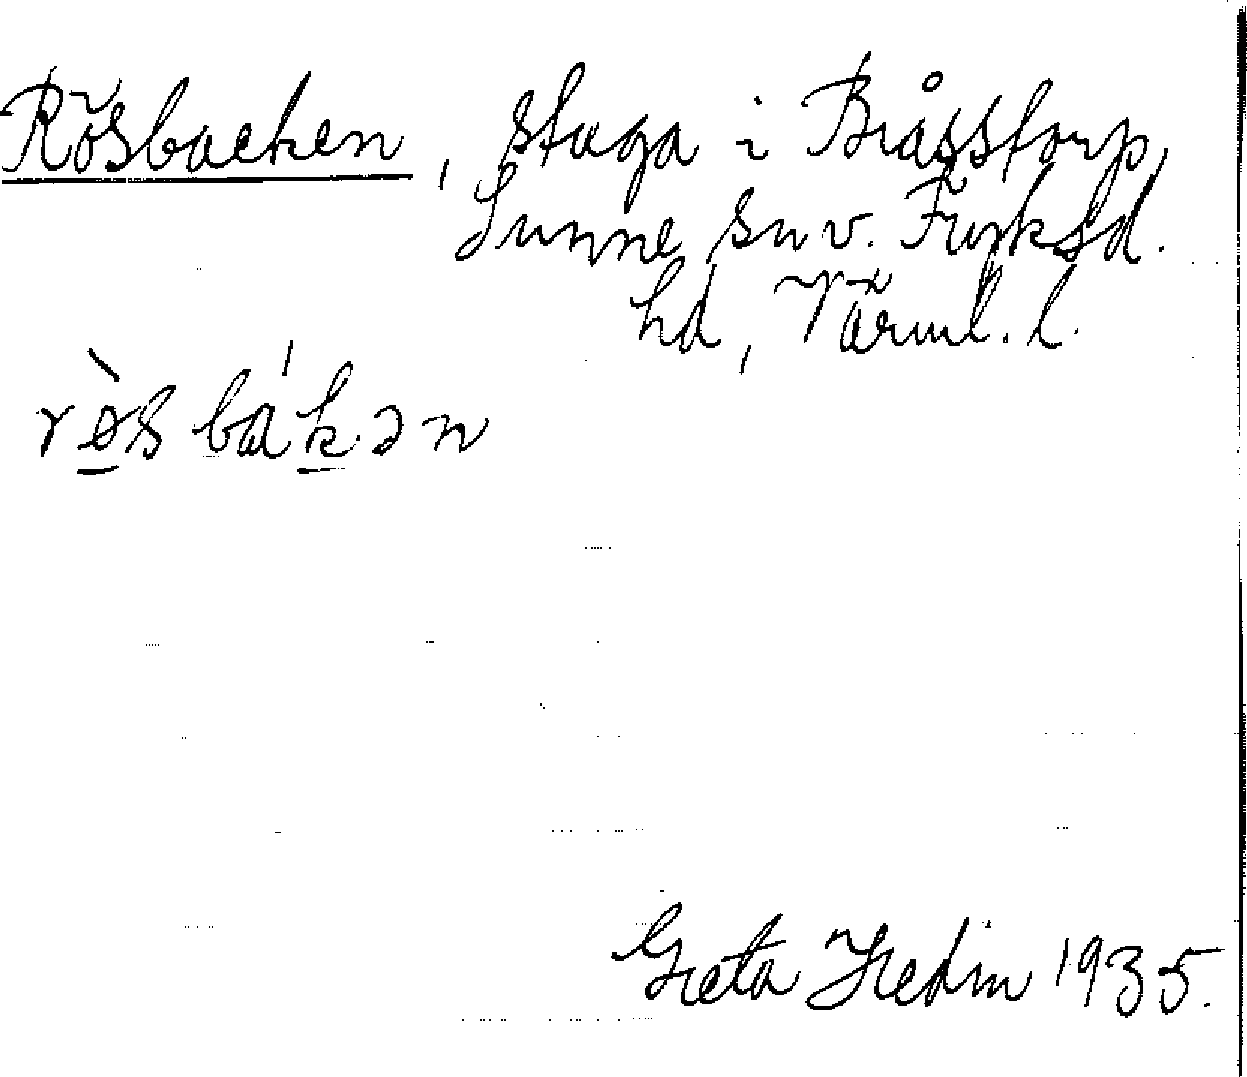 Rösbacken, stuga i Bråsstorp,
Sunne sn v. Fryksd.
hd, Värml. l.
rø̀s bákən
Greta Hedin 1935.